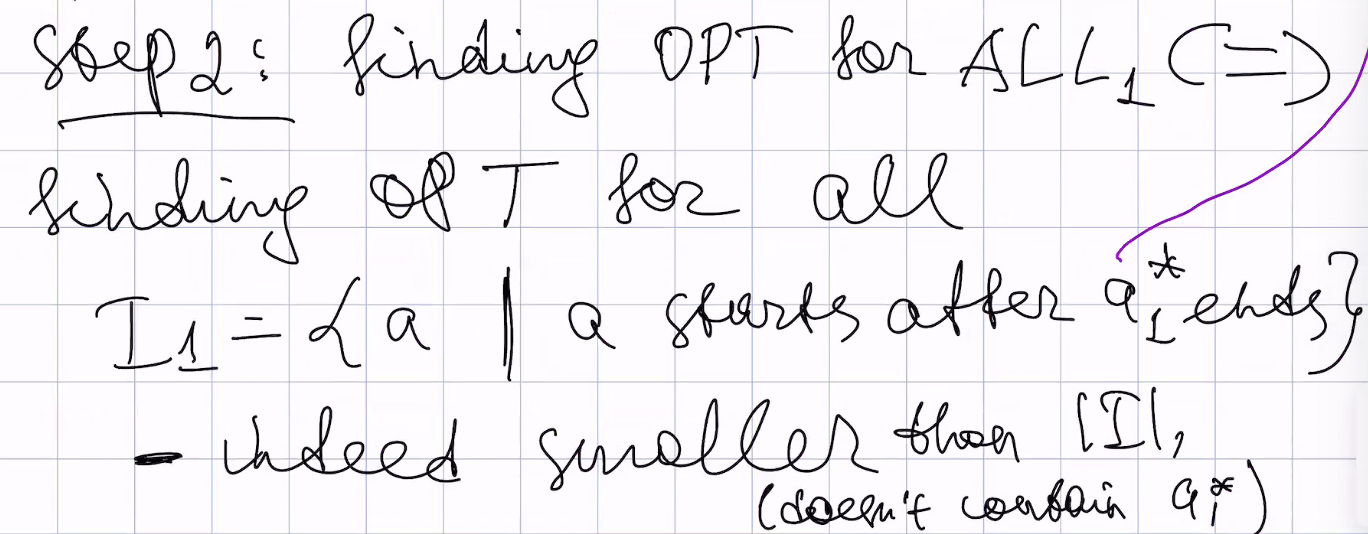 step 2: finding OPT for ALL₁ (=)
finding OPT for all
I₁ = { a | a starts after a₁* ends}
- indeed smaller than |I|,
(doesn't contain a₁*)